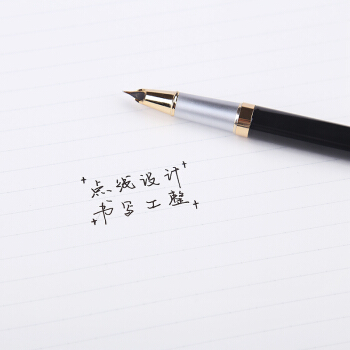 点线设计
书写工整